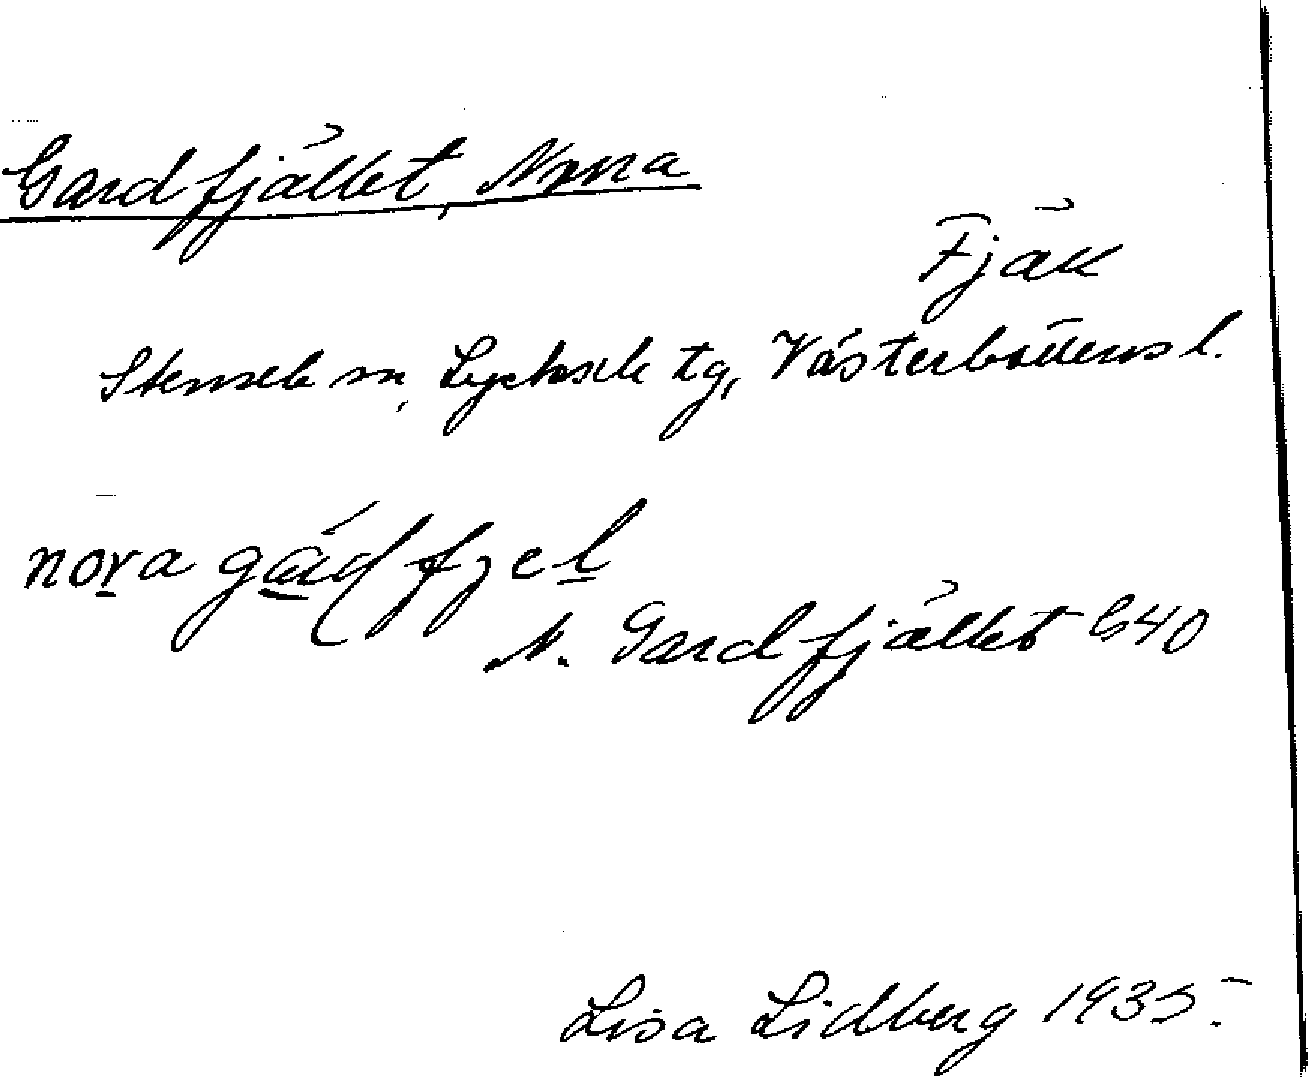 Gardfjället, Norra
Fjäll
Stensele sn, Lycksele tg, Västerbottens l.
nora gárdfjel
N. Gardfjället G40
Lisa Lidberg 1935.